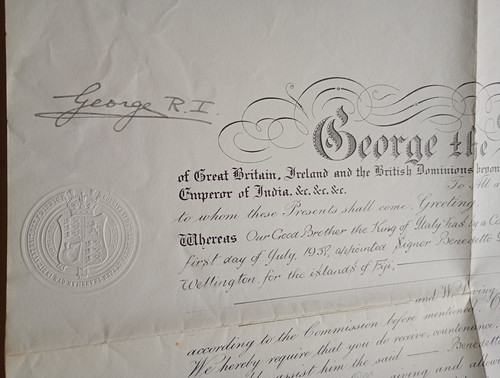 George R.I.
George the
of Great Britain, Ireland and the British Dominions beyond
Emperor of India. &c. &c. &c.
To All
to whom these Presents shall come, Greeting
Whereas Our Good Brother the King of Italy has by a
first day of July, 1937, appointed Signor Benedetto
Wellington, for the islands of Fiji,
and We having
according to the Commission before mentioned
We hereby require that you do receive, countenance
assist him the said — Benedetto
giving and